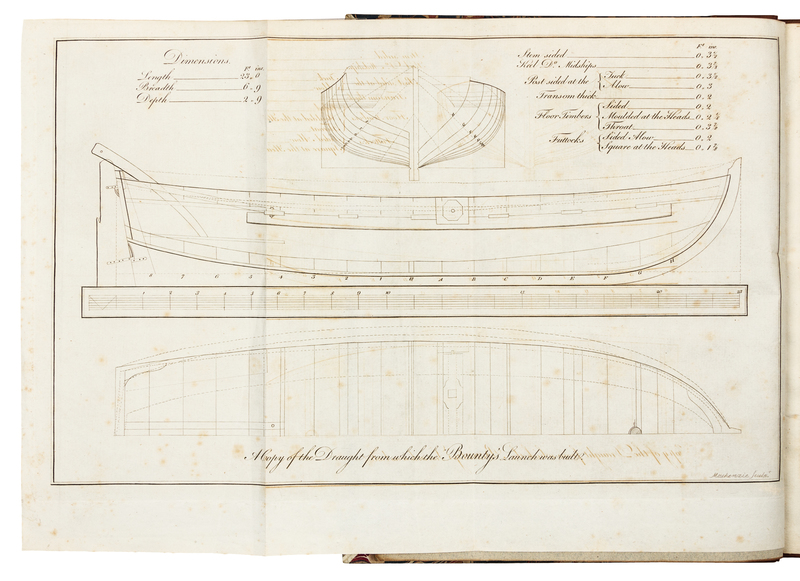 Dimensions.
Ft ins.
Length 23 „ 0
Breadth 6 „ 9
Depth 2 „ 9
Ft ins
Stem sided 0 „ 3½
Keel Do Midships 0 „ 3½
Post sided at the { Tuck 0 „ 3½
Alow 0 „ 3
Transom thick 0 „ 2
Floor Timbers { Sided 0 „ 2
Moulded at the Heads 0 „ 2¼
Throat
Futtocks { Sided Alow 0 „ 2
Square at the Heads
8 7 6 5 4 3 2 1 A B C D E F G H
1 2 3 4 5 6 7 8 9 10 20
A Copy of the Draught from which the Bounty's Launch was built.